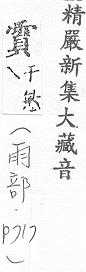 精嚴新集大藏音
霣、于敏(雨部.p717)